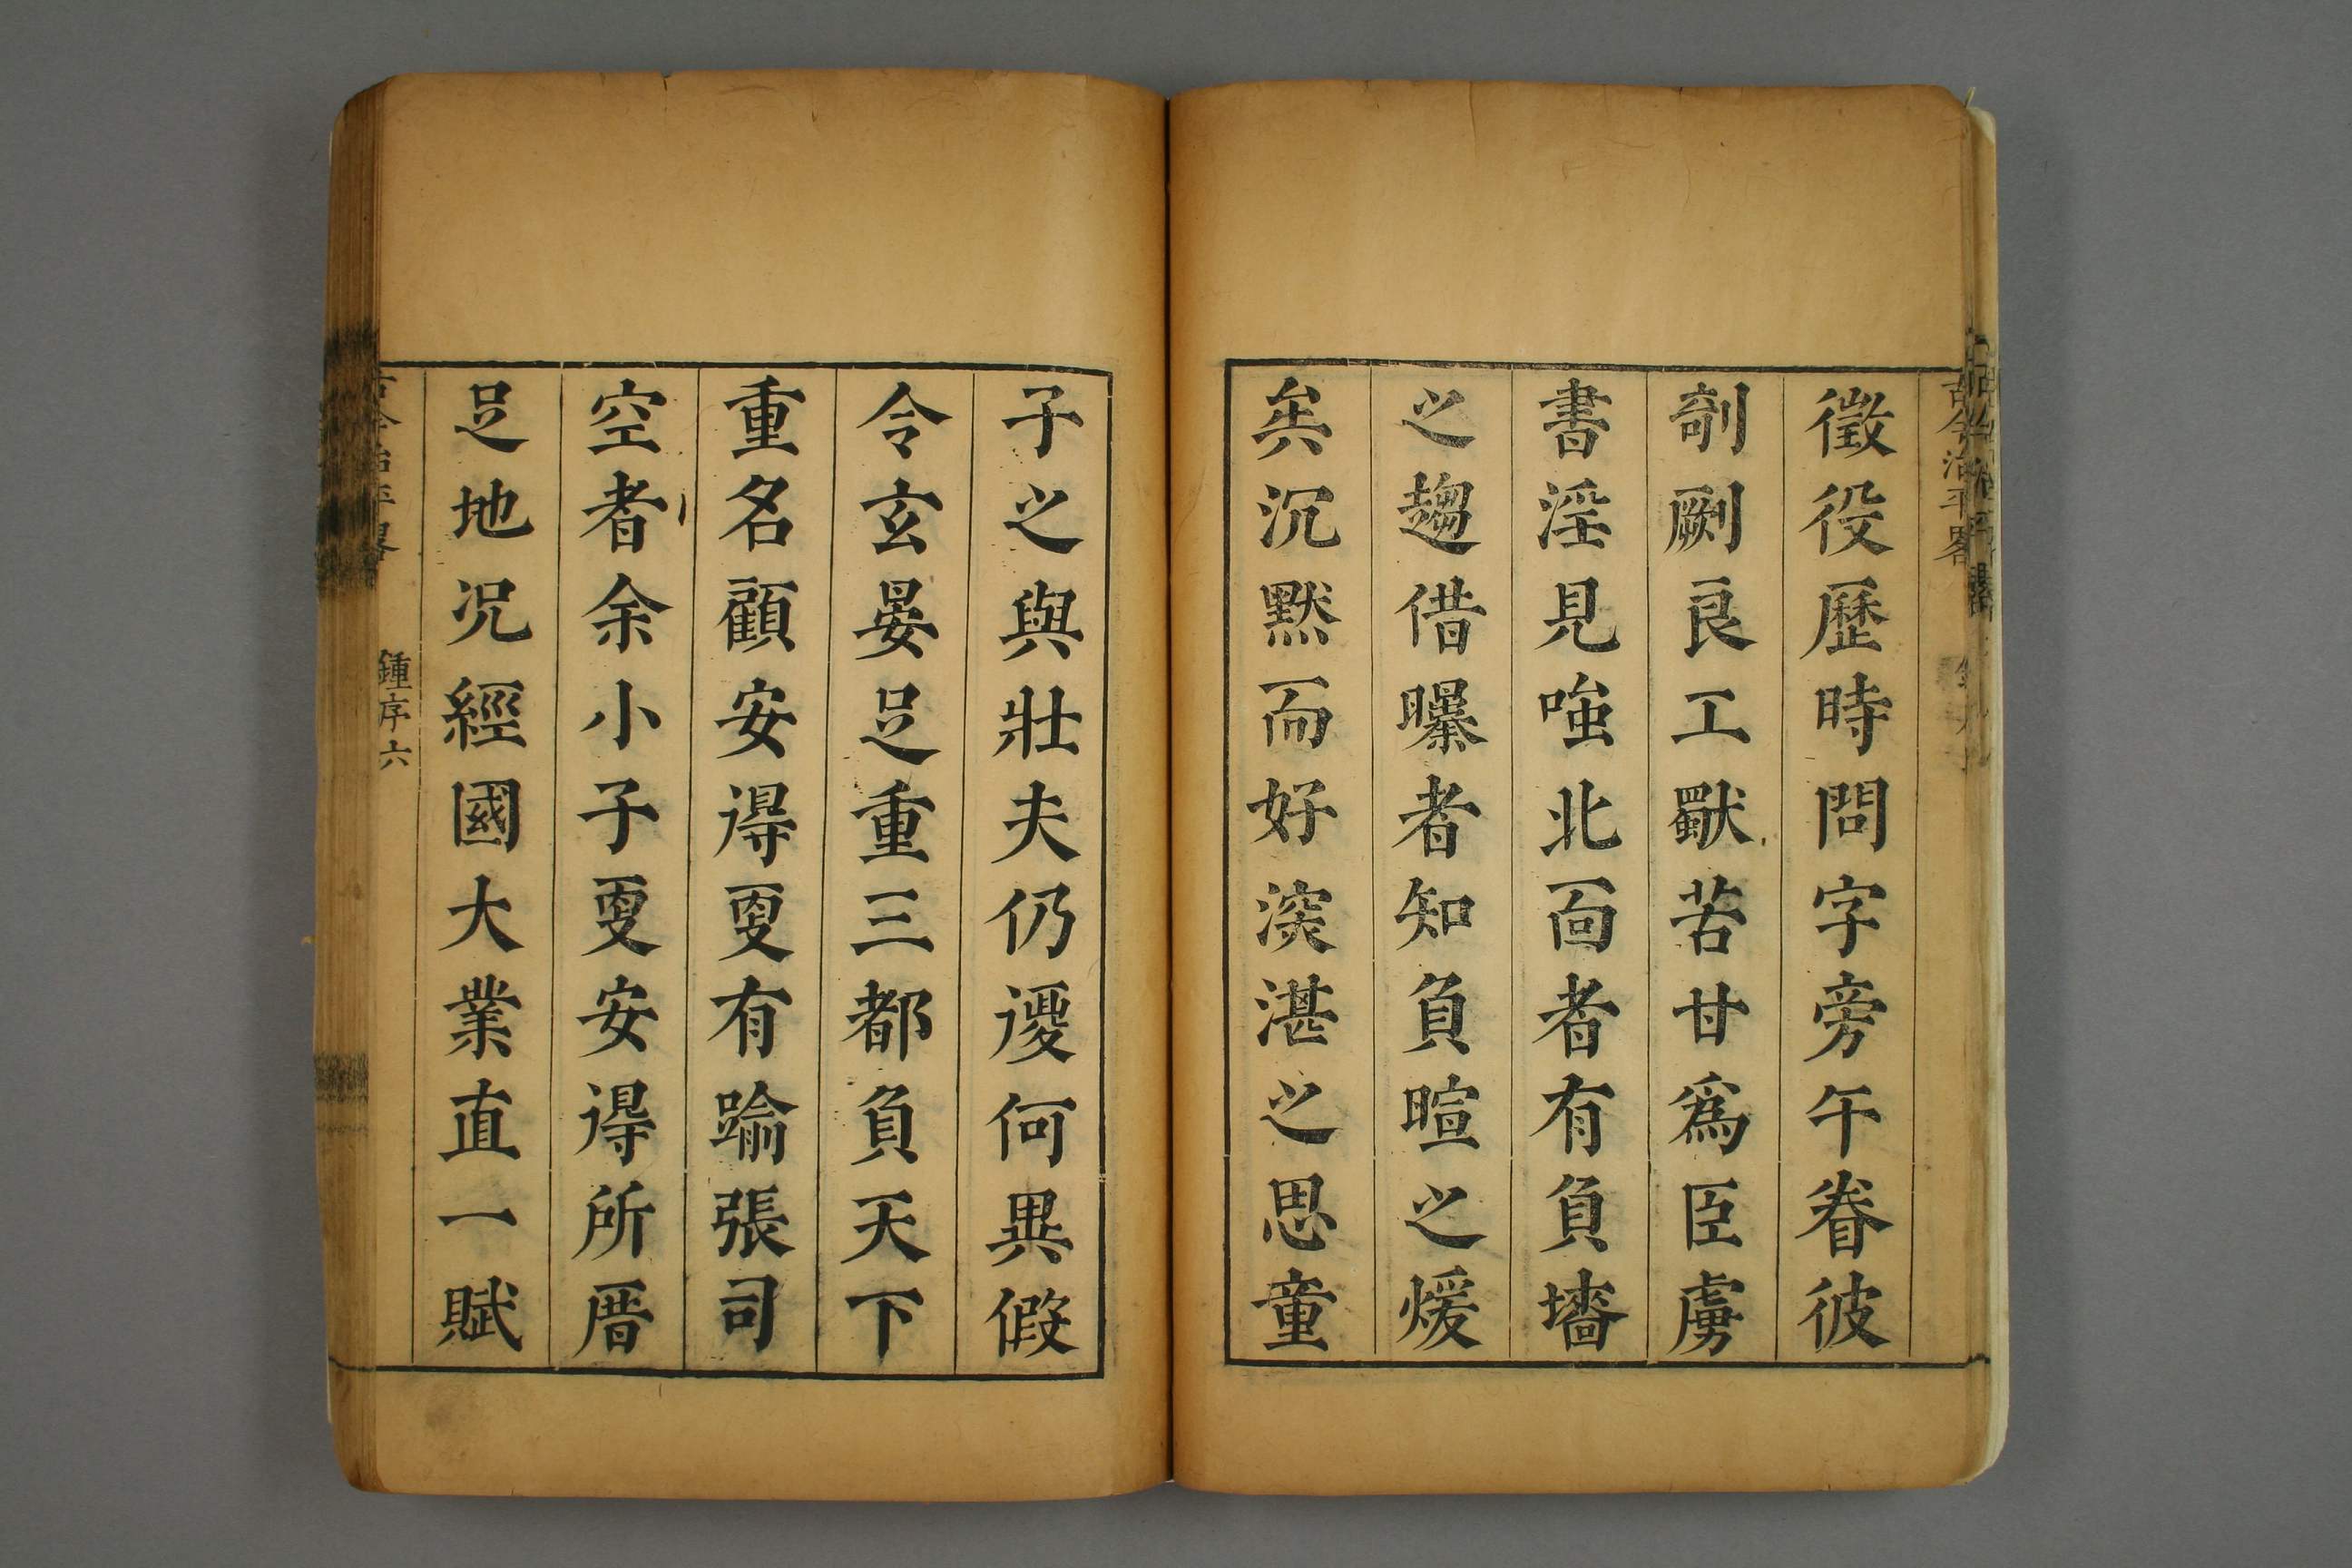 徵役歷時問字旁午眷彼
剞劂良工獸苦甘為臣虜
書淫見嗤北面者有負墻
之趨借曝者知負暄之煖
矣沉默而好深湛之思童
子之與壯夫仍復何異假
令玄晏足重三都負天下
重名顧安得更有踰張司
空者余小子更安得所厝
足地況經國大業直一賦
古今治平畧
鍾序六